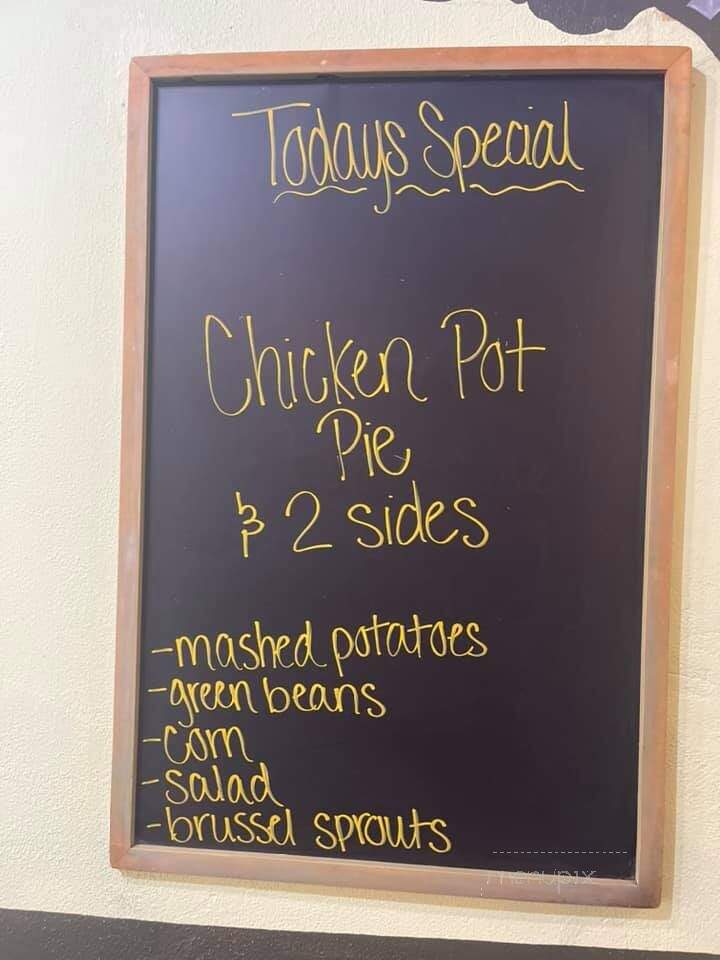 Todays Special
Chicken Pot
Pie
& 2 sides
-mashed potatoes
-green beans
-corn
-salad
-brussel sprouts
menupix